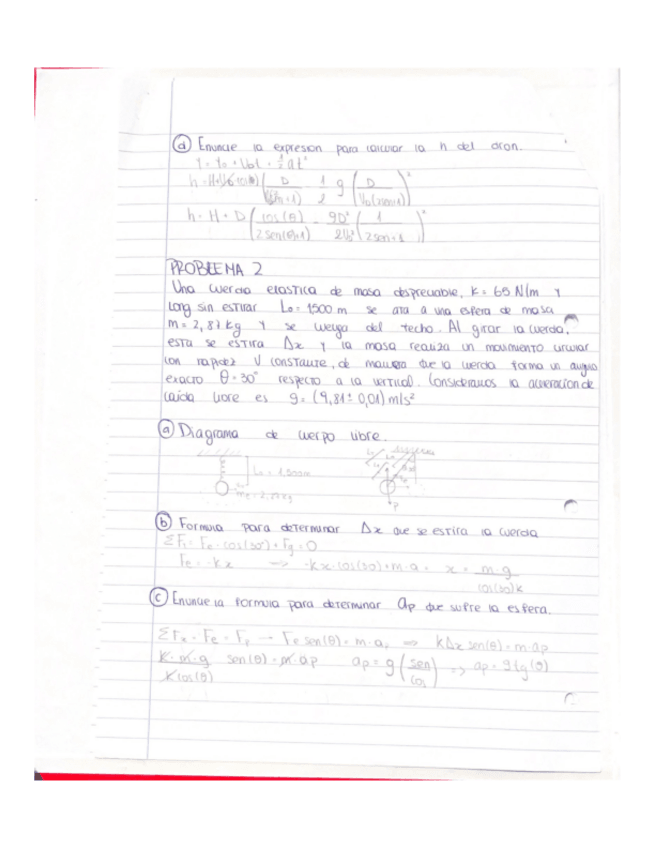 ⓓ Enuncie la expresion para calcular la h del dron.
h = H + D (cos(θ) / 2sen(θ)+1) - gD² / 2V₀² (1 / 2sen+1)²
PROBLEMA 2
Una cuerda elastica de masa despreciable, K = 65 N/m y
long sin estirar L₀ = 1500 m se ata a una esfera de masa
m = 2,87 kg y se cuelga del techo. Al girar la cuerda,
esta se estira Δx y la masa realiza un movimiento circular
con rapidez V constante, de manera que la cuerda forma un angulo
exacto θ = 30° respecto a la vertical. Consideramos la aceleracion de
caida libre es g = (9,81 ± 0,01) m/s²
ⓐ Diagrama de cuerpo libre.
ⓑ Formula para determinar Δx que se estira la cuerda
Fe = -kx ⇒ -kx·cos(30)+m·a = x = m·g / cos(30)k
ⓒ Enuncie la formula para determinar ap que sufre la esfera.
ΣFx = Fe = Fp → Fe sen(θ) = m·ap ⇒ kΔx sen(θ) = m·ap
K·m·g / K cos(θ) sen(θ) = m·ap ap = g (sen / cos) ⇒ ap = g tg(θ)